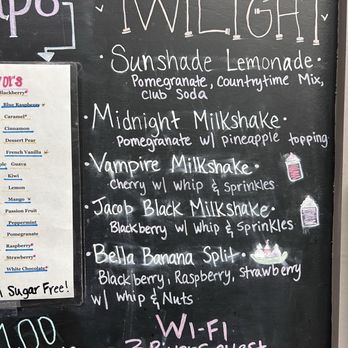 TWILIGHT
·Sunshade Lemonade·
Pomegranate, Countrytime Mix,
club Soda
·Midnight Milkshake·
Pomegranate w/ pineapple topping
·Vampire Milkshake·
cherry w/ whip & Sprinkles
·Jacob Black Milkshake·
Blackberry w/ whip & sprinkles
·Bella Banana Split·
Blackberry, Raspberry, Strawberry
w/ whip & Nuts
WI-FI
Blackberry*
Blue Raspberry *
Caramel*
Cinnamon
Dessert Pear
French Vanilla *
Guava
Kiwi
Lemon
Mango *
Passion Fruit
Peppermint
Pomegranate
Raspberry*
Strawberry*
White Chocolate*
Sugar Free!
1.00